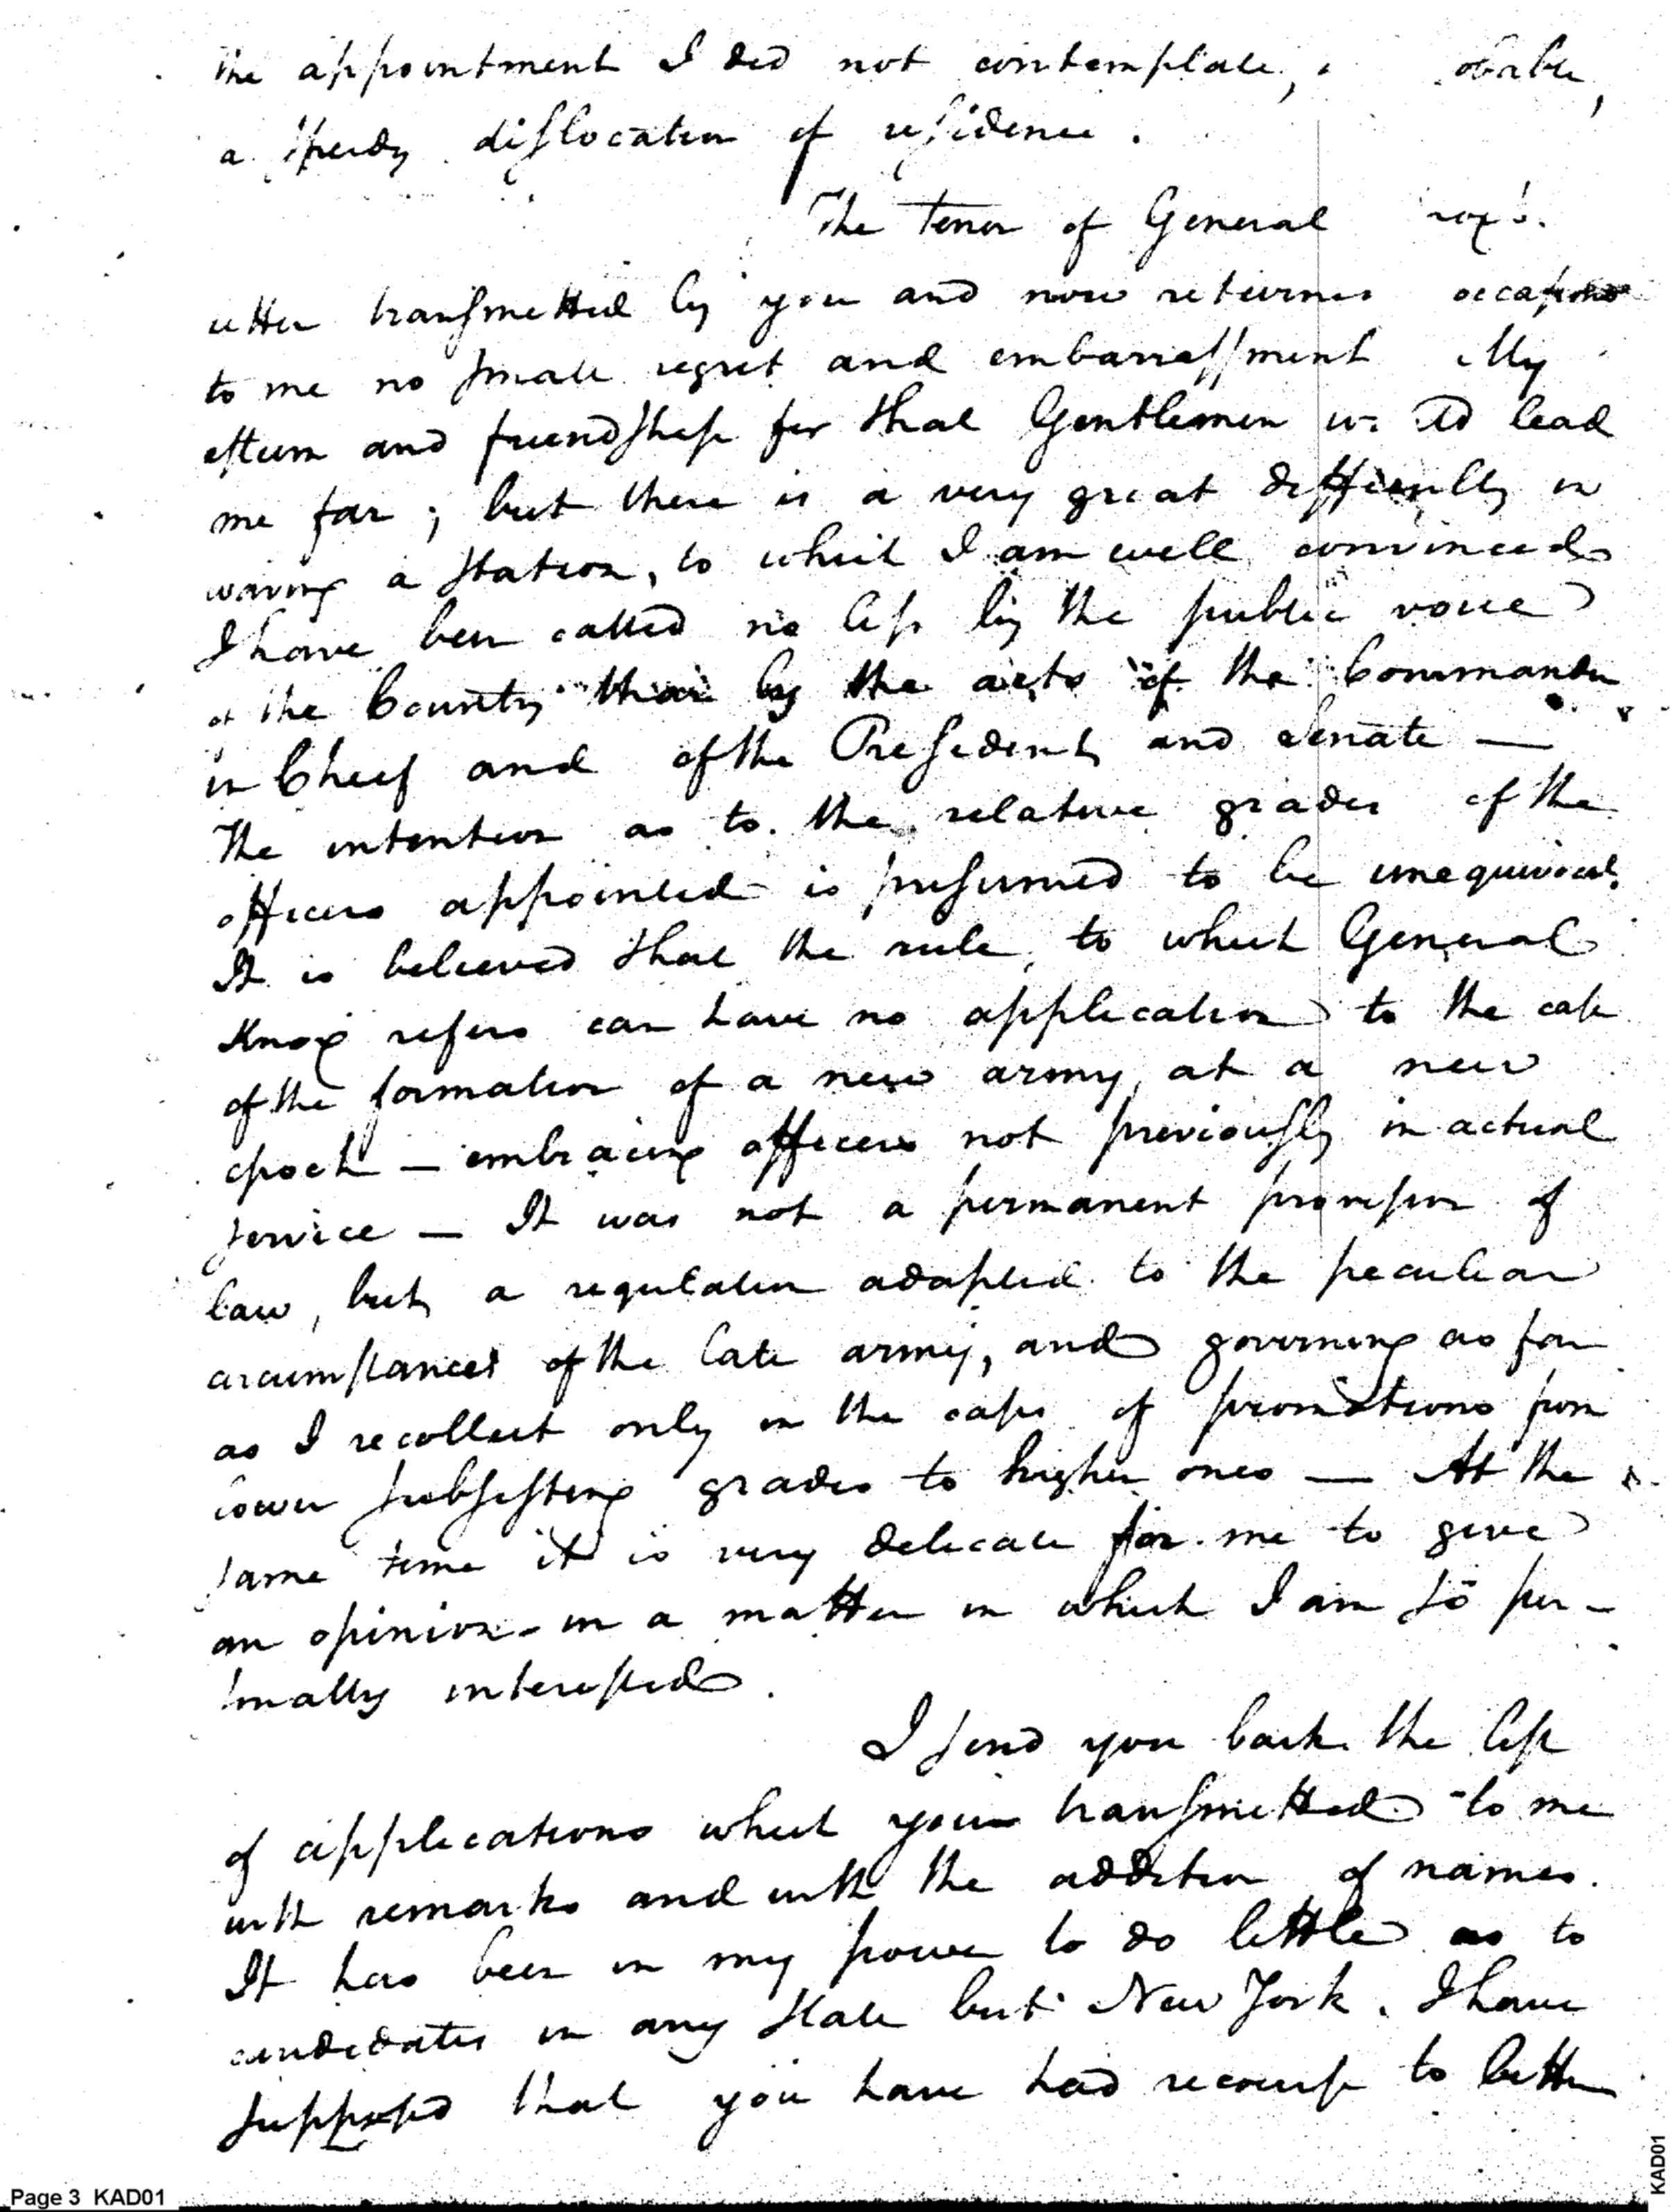 the appointment I did not contemplate,
a speedy dislocation of residence.
The tenor of General
transmitted by you and now returned occasions
to me no small regret and embarrassment My
esteem and friendship for that Gentleman would lead
me far; but there is a very great difficulty in
waving a station, to which I am well convinced
I have been called no less by the public voice
of the Country than by the acts of the Commander
in Chief and of the President and Senate —
The intention as to the relative grades of the
officers appointed is presumed to be unequivocal.
It is believed that the rule, to which General
Knox refers can have no application to the case
of the formation of a new army, at a new
epoch — embracing officers not previously in actual
service — It was not a permanent provision of
law, but a regulation adapted to the peculiar
circumstances of the late army, and governing as far
as I recollect only in the case of promotions from
lower subsisting grades to higher ones — At the
same time it is very delicate for me to give
an opinion in a matter in which I am so per-
sonally interested.
I send you back the list
of applications which you transmitted to me
with remarks and with the addition of names.
It has been in my power to do little as to
candidates in any State but New York. I have
supposed that you have had recourse to better
Page 3 KAD01
KAD01